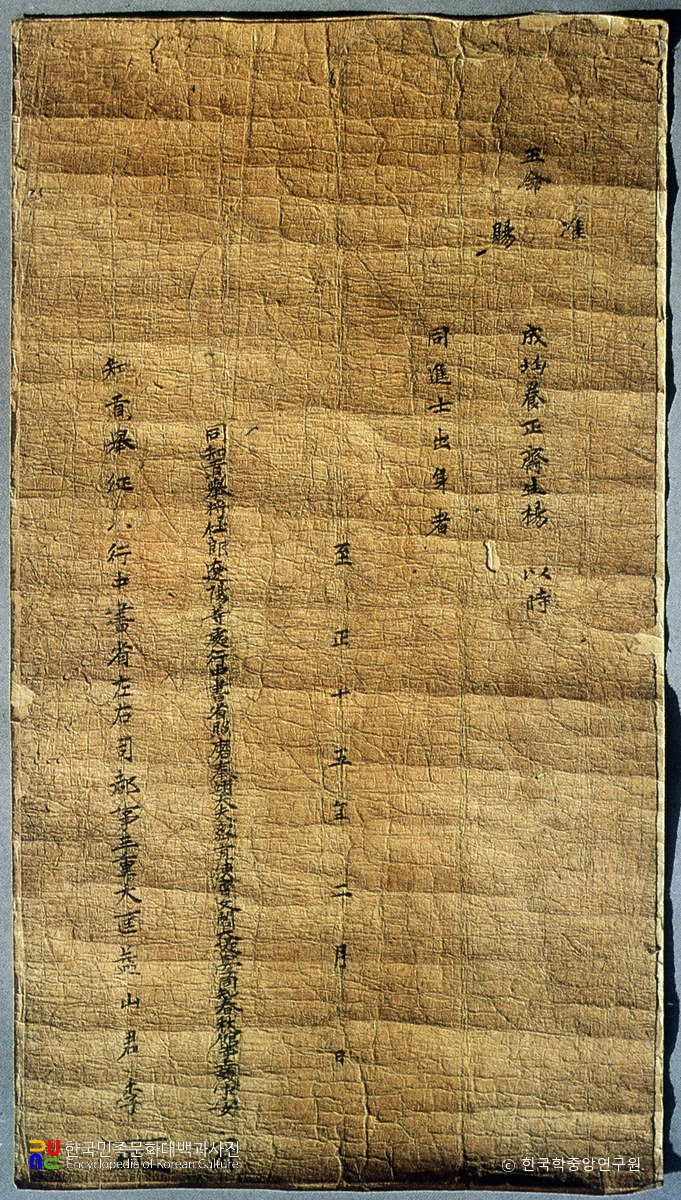 准
王命 成均養正齋生楊 以時
賜
同進士出身者
至正十五年二月 日
同知貢擧將仕郎遼陽等處行中書省照磨奉翊大夫 春秋館 安
知貢擧征東行中書省左右司都事三重大匡益山君李
한국민족문화대백과사전
Encyclopedia of Korean Culture
© 한국학중앙연구원